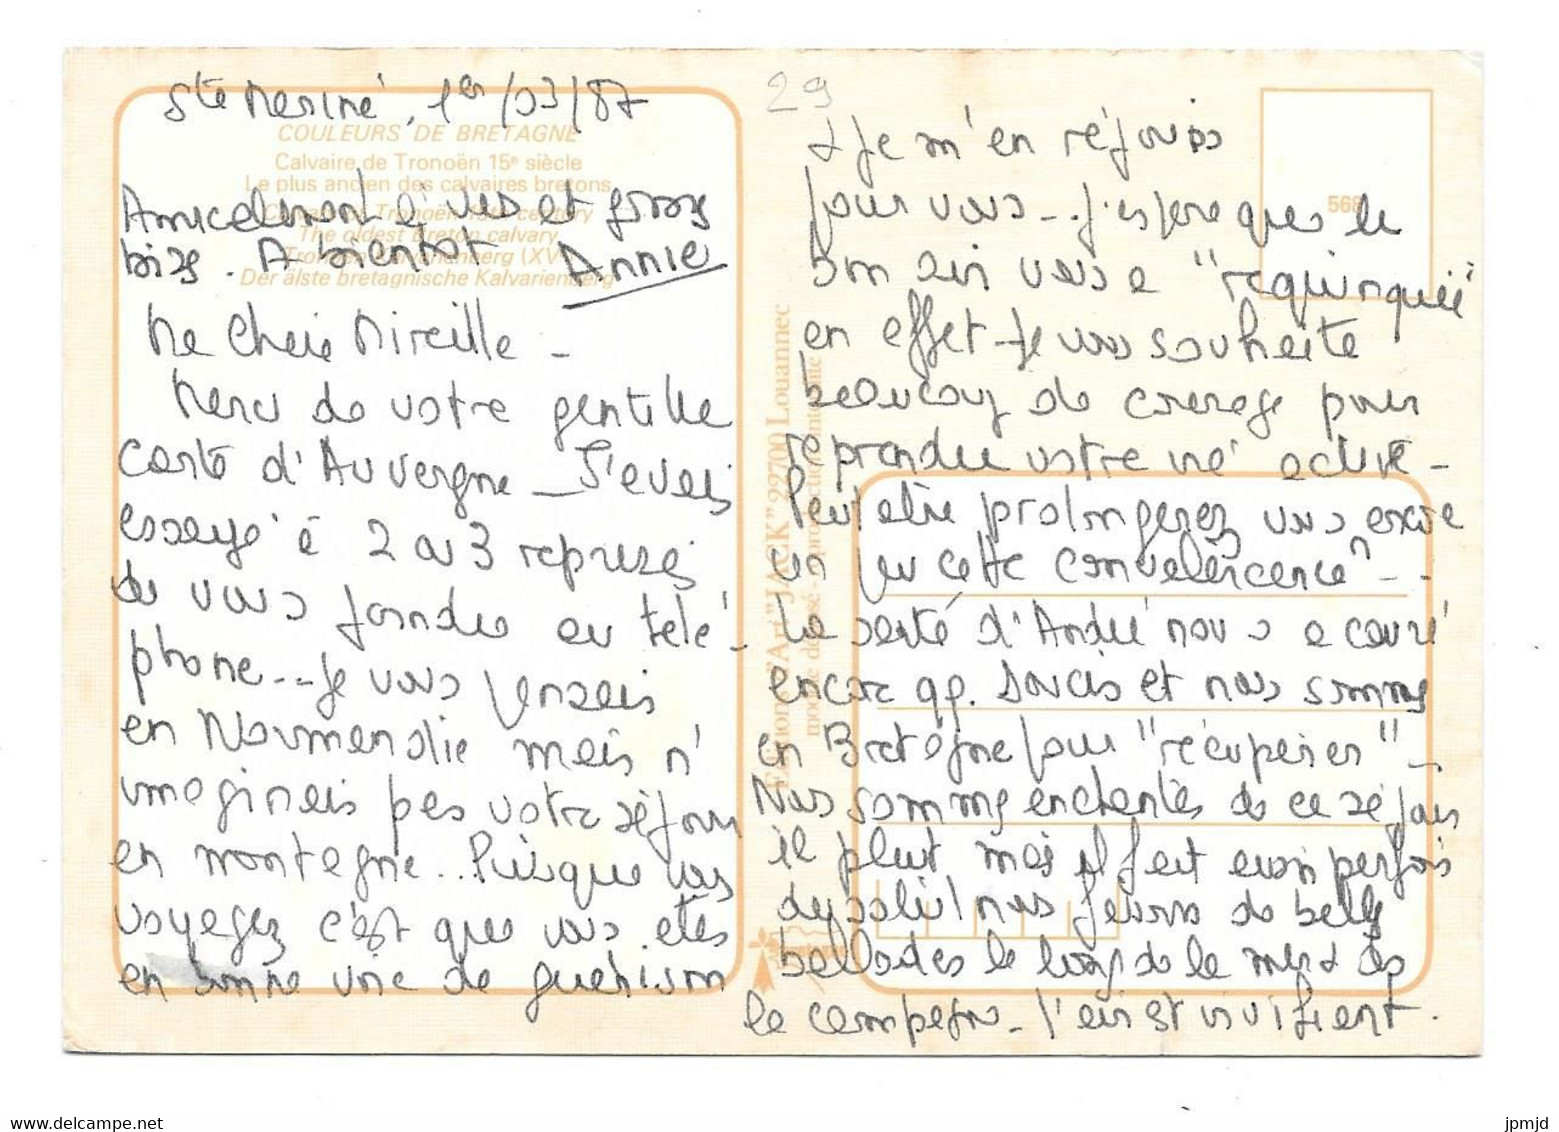 Ste Mariné, 1er/03/87
COULEURS DE BRETAGNE
Calvaire de Tronoën 15e siècle
Le plus ancien des calvaires bretons
The oldest Breton calvary
Der älste bretagnische Kalvarienberg
Ma Chère Mireille -
Merci de votre gentille
carte d'Auvergne - J'avais
essayé à 2 ou 3 reprises
de vous joindre au télé-
phone... Je vous pensais
en Normandie mais n'
imaginais pas votre séjour
en montagne.. Puisque vous
voyagez c'est que vous êtes
en bonne voie de guérison
29
& je m'en réjouis
pour vous... j'espère que le
bon air vous a "requinquée"
en effet - Je vous souhaite
beaucoup de courage pour
reprendre votre vie active -
Peut être prolongerez vous encore
un peu cette convalescence - -
La santé d'André nous a causé
encore qq. soucis et nous sommes
en Bretagne pour "récupérer" -
Nous sommes enchantés de ce séjour
il pleut mais il fait aussi parfois
du soleil nous faisons de belles
ballades le long de la mer & ds
la campagne - l'air est vivifiant.
Amicalement à vous et grosses
bizes. A bientot Annie
568
Editions d'Art "JACK" 22700 Louannec
modèle déposé - reproduction interdite
jpmjd
delcampe.net